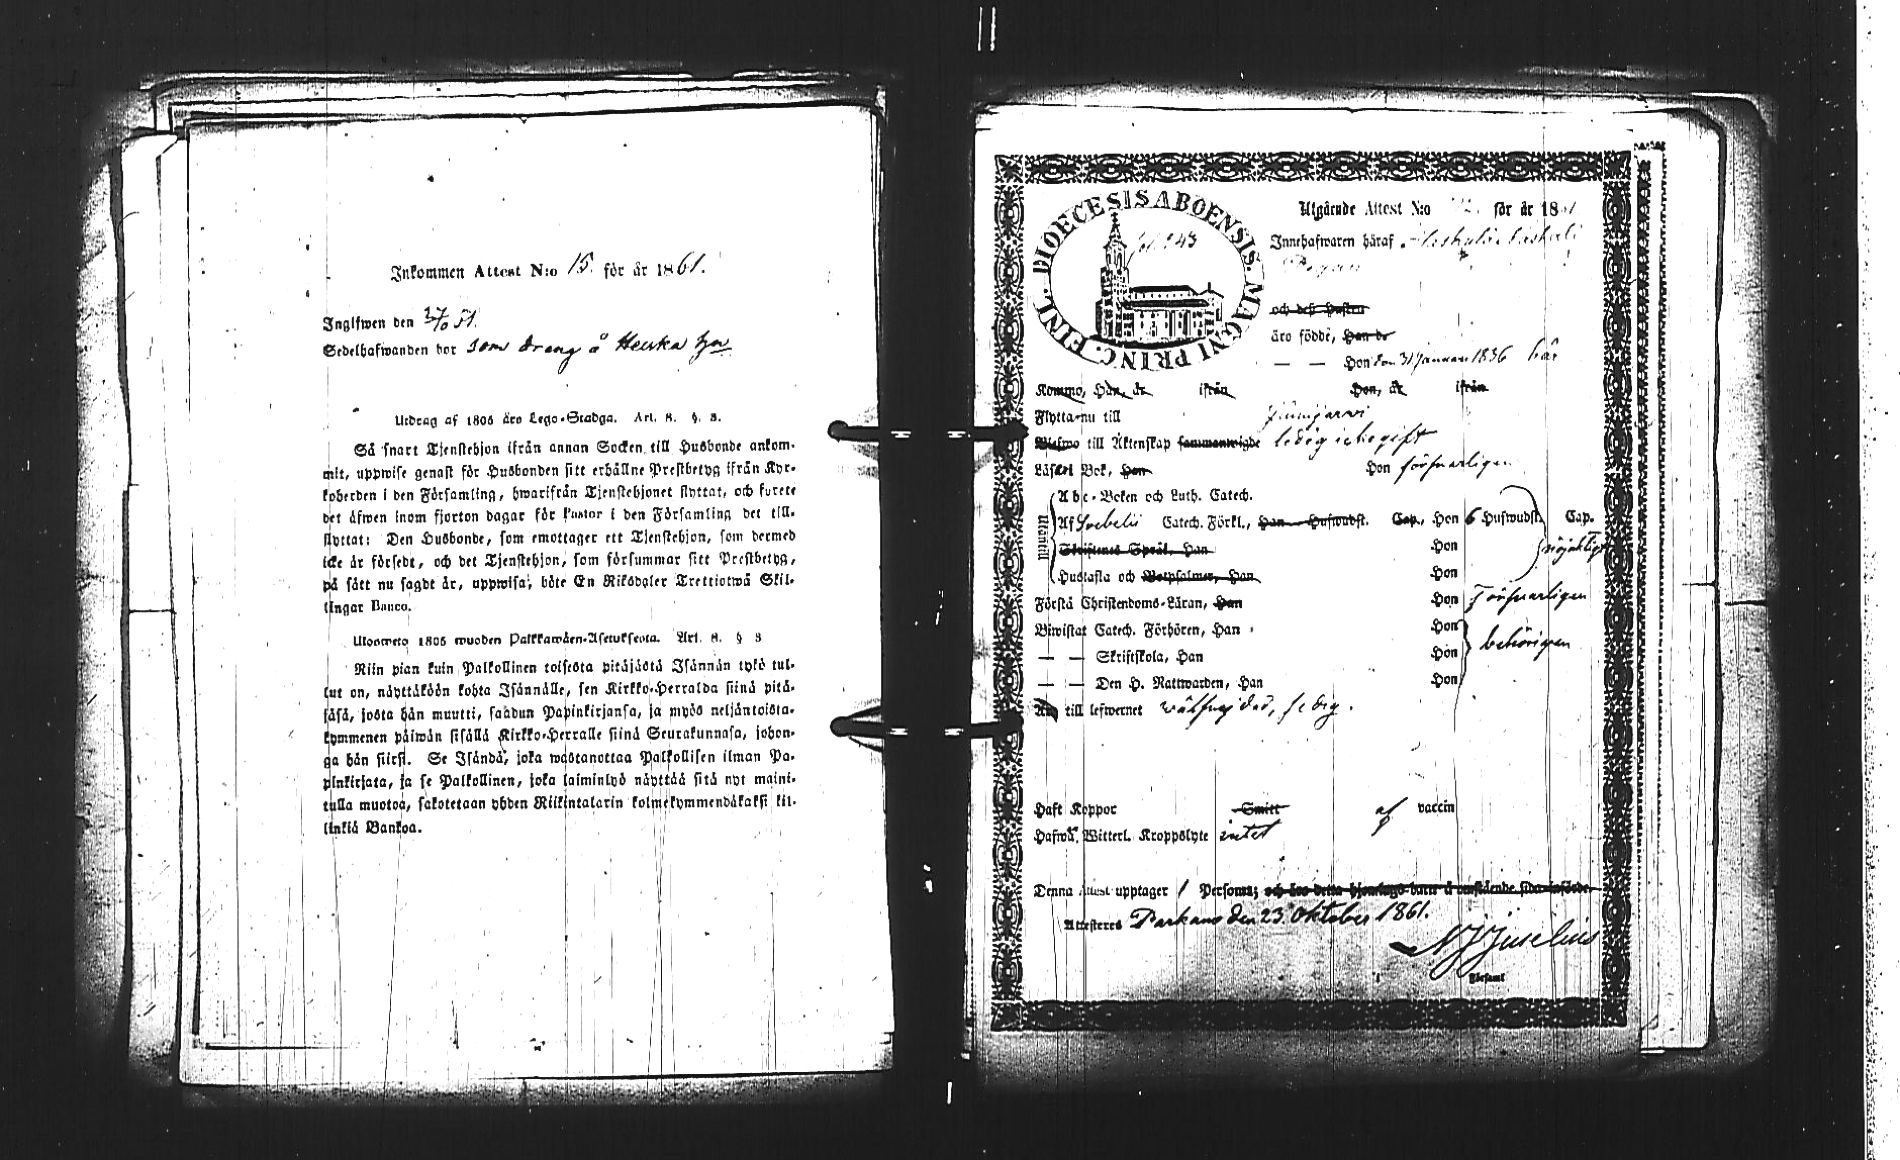 Inkommen Attest N:o 15. för år 1861.
Inglfwen den 27/10 51.
Sedelhafwanden bor som dreng å
Utdrag af 1805 års Lego-Stadga. Art. 8. §. 3.
Så snart Tjenstehjon ifrån annan Socken till Husbonde ankom-
mit, uppwise genast för Husbonden sitt erhållne Prestbetyg ifrån Kyr-
koherden i den Församling, hwarifrån Tjenstehjonet flyttat, och förete
det äfwen inom fjorton dagar för Pastor i den Församling det till-
flyttat: Den Husbonde, som emottager ett Tjenstehjon, som dermed
icke är försedt, och det Tjenstehjon, som försummar sitt Prestbetyg,
på sätt nu sagdt är, uppwisa, böte En Riksdaler Trettiotwå Skil-
lingar Banco.
Ulosweto 1805 wuoden Palkkawäen-Asetuksesta. Art. 8. § 3
Niin pian kuin Palkollinen toisesta pitäjästä Isännän tykö tul-
lut on, näyttäköön kohta Isännälle, sen Kirkko-Herralda siinä pitä-
jäsä, josta hän muutti, saadun Papinkirjansa, ja myös neljäntoista-
kymmenen päiwän sisällä Kirkko-Herralle siinä Seurakunnasa, johon-
ga hän siirsi. Se Isändä, joka wastanottaa Palkollisen ilman Pa-
pinkirjata, ja se Palkollinen, joka laiminlyö näyttää sitä nyt maini-
tulla muotoa, sakotetaan yhden Riikintalarin kolmekymmendäkaksi kil-
linkiä Bankoa.
DIOECESIS ABOENSIS. MAGNI PRINC. FINL.
Utgående Attest N:o för år 1861
Innehafwaren häraf
och dess Hustru
äro födde, Han de
— — Hon den 31 Januari 1836 här
Kommo, Han, år ifrån Hon, år ifrån
Flytta nu till
Wiswo till Äktenskap sammanwigde ledig icke gift
Läsa i Bok, Han Hon försvarligen
Utantill
Abc-Boken och Luth. Catech.
Af Svebelii Catech. Förkl., Han Huswudst. Cap., Hon 6 Huswudst. Cap.
Skriftenes Språk, Han Hon nöjaktigt
Hustafla och Botpsalmer, Han Hon
Förstå Christendoms-Läran, Han Hon försvarligen
Biwistat Catech. Förhören, Han Hon
— — Skriftskola, Han Hon behörigen
— — Den H. Nattwarden, Han Hon
till lefwernet
Haft Koppor Smitt af vaccin
Hafwa Witterl. Kroppslyte intet
Denna Attest upptager 1 Persons; och äro detta hjonelags barn å omstående sida införde.
Attesteres Parkano den 23 Oktober 1861.
Församl